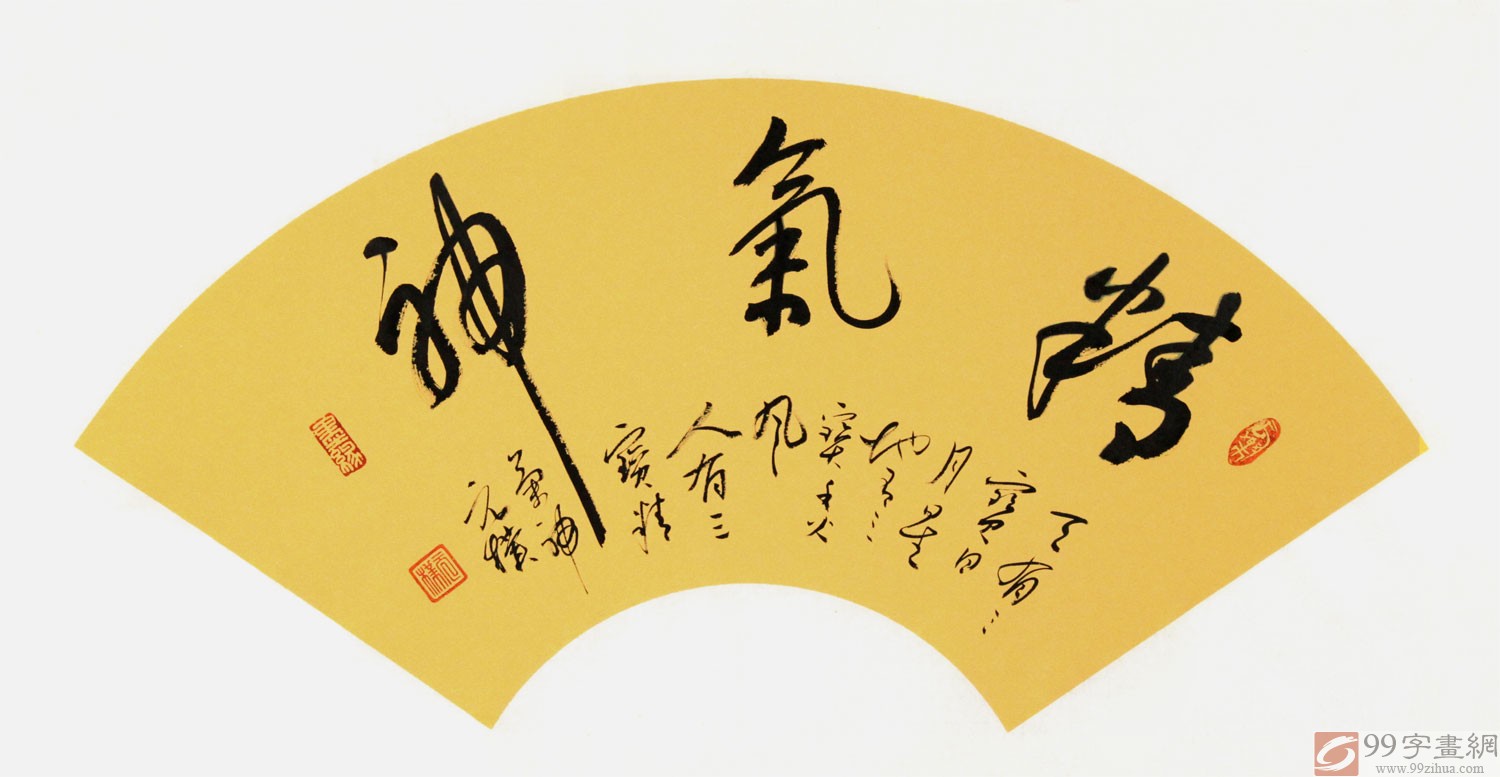 精氣神
天有三
寶日
月星
地有三
寶水火
風
人有三
寶精
氣神
元樸
99字畫網
www.99zihua.com